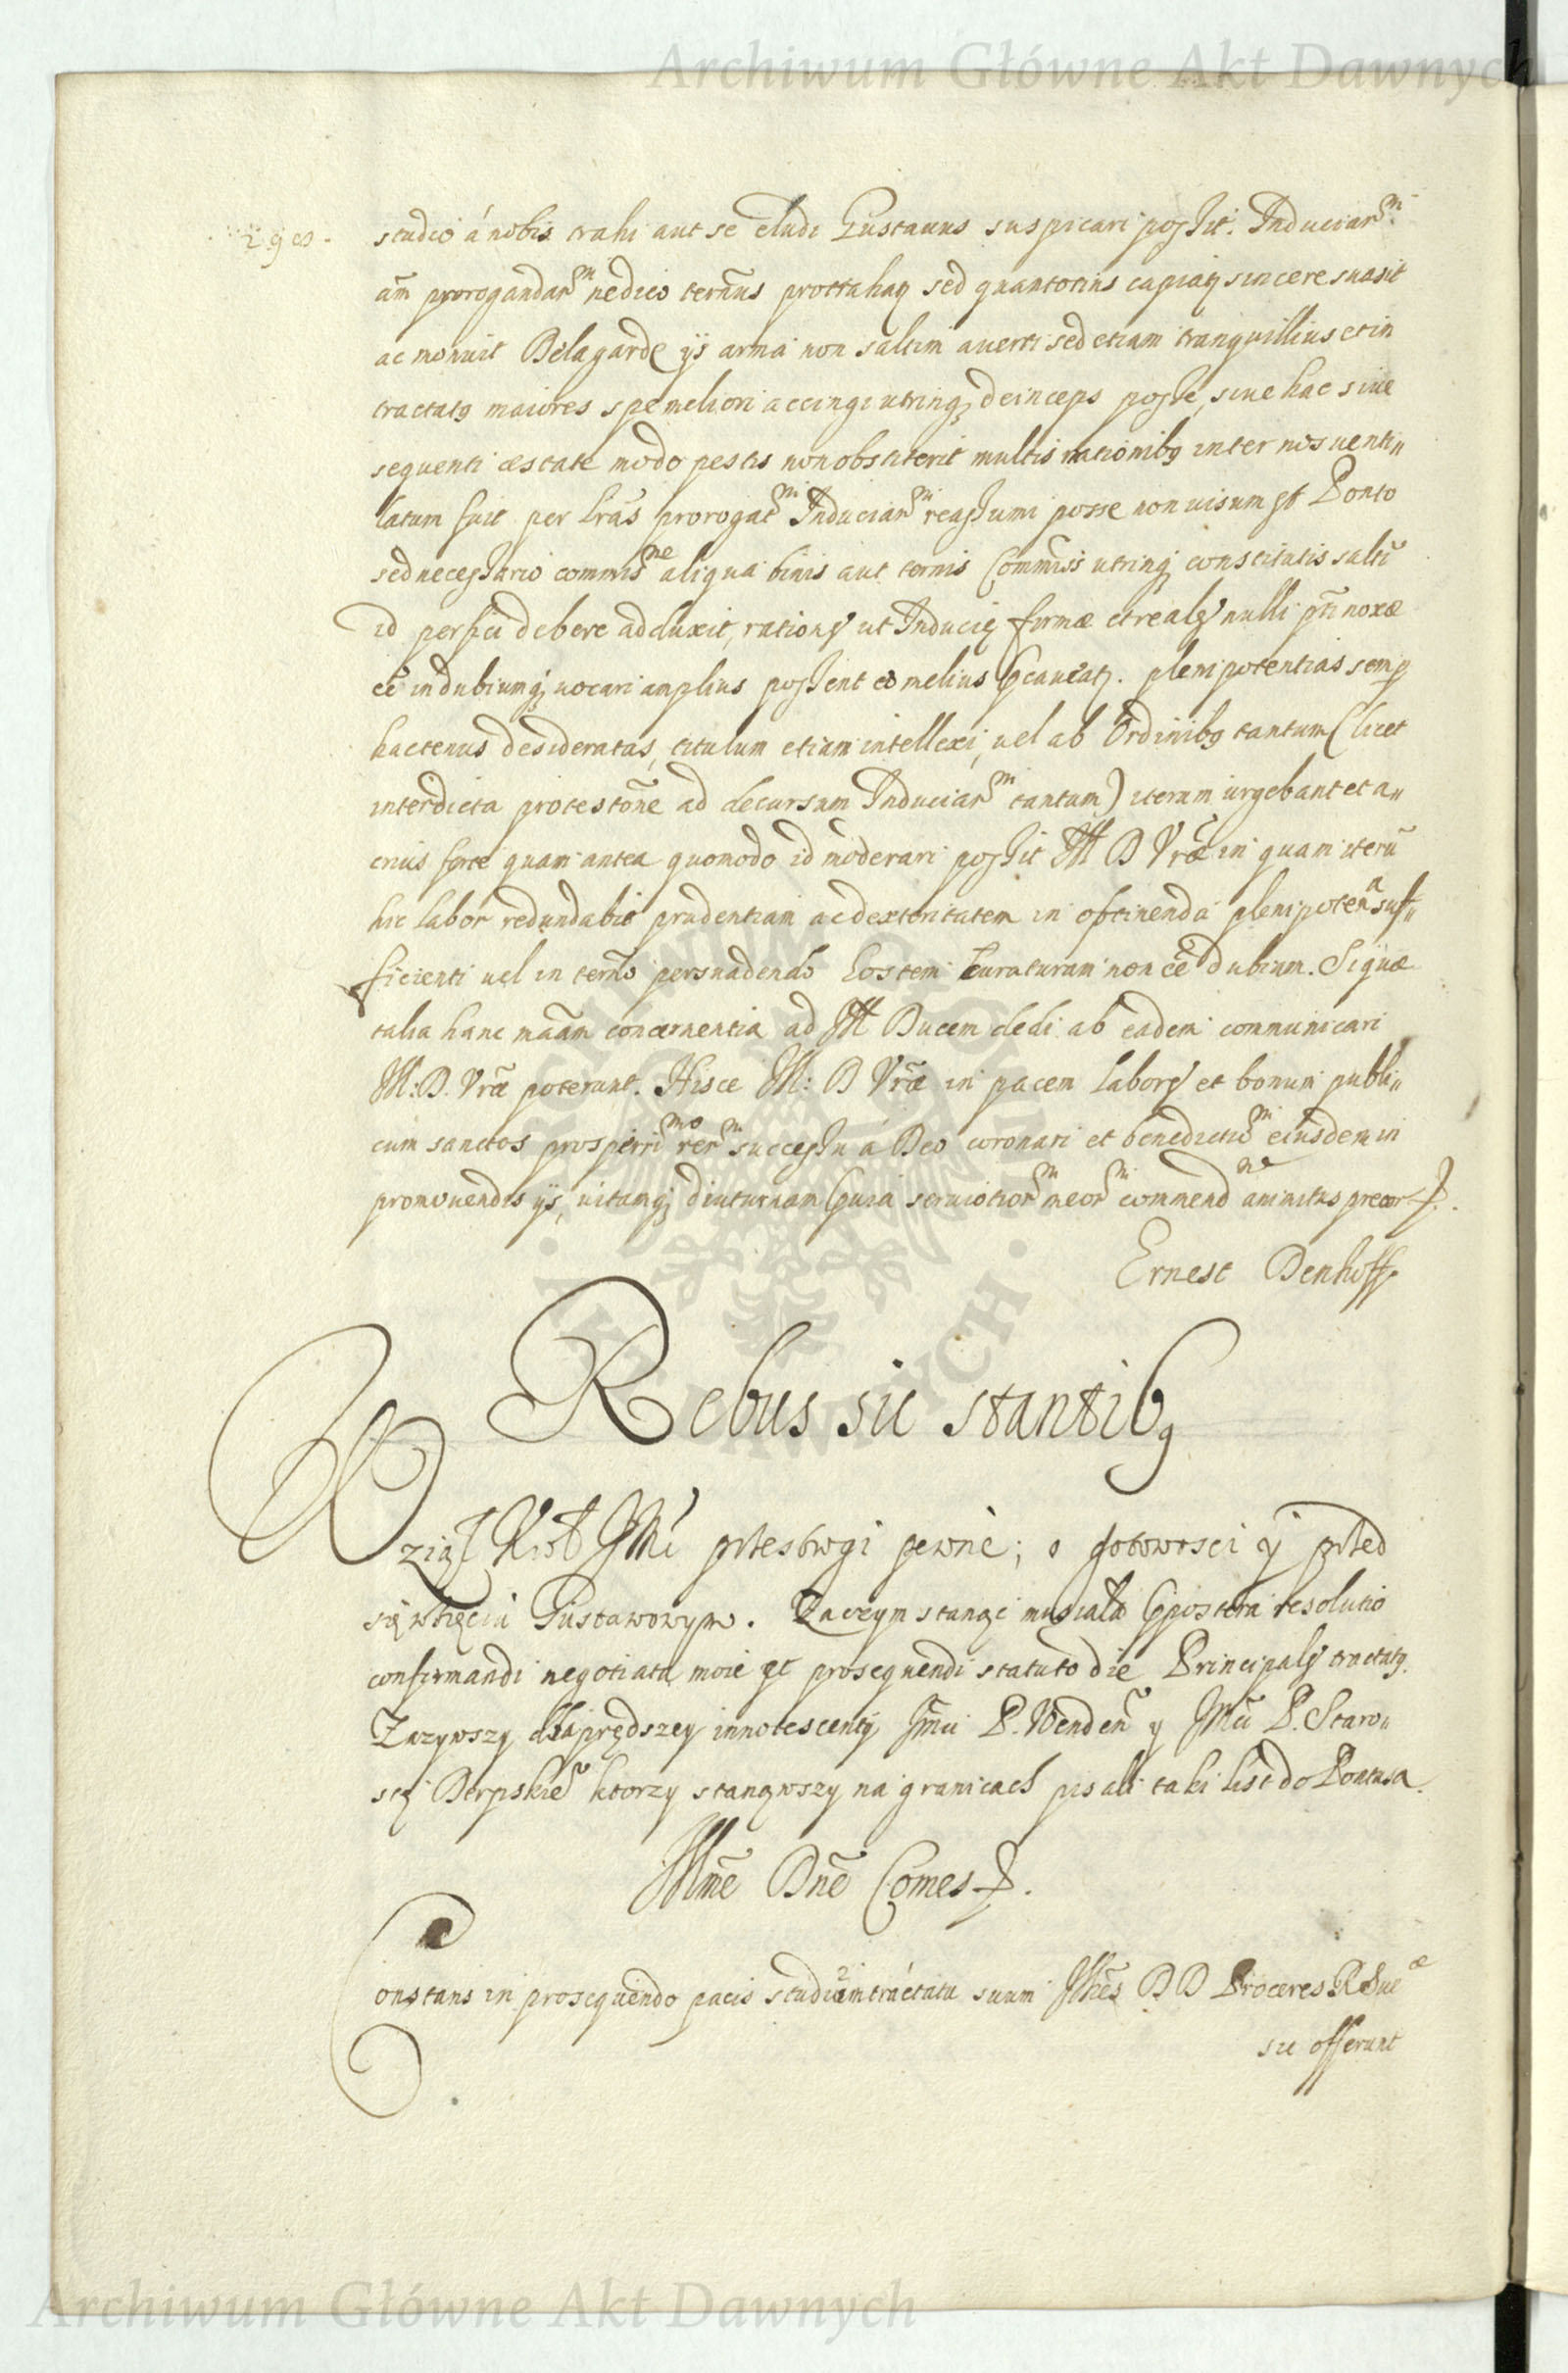 Archiwum Główne Akt Dawnych
studio á nobis trahi aut se eludi Gustauus suspicari possit. Induciar^m
am̃ prorogandar^m nedico term̃us prottrahat^r sed quantotius capiat^r sincere suasit
ac monuit Delagarde ijs arma non saltim auerti sed etiam tranquillius et in
tractatq maiores spe meliori accingi utrinq deinceps posse, siue hac siue
sequenti æstate modo pestis non obstiterit multis rationibq inter nos uenti„
latum fuit per lr̃as prorogat^m Induciar^m reassumi posse non uisum est Ponto
sed necessario commis^ne aliqua binis aut ternis Com̃miss utrinq constitutis saltĩ
id perfici debere adduxit, rationes ut Induciæ firmæ et reales nulli noxæ
eẽ in dubiumq uocari amplius possent eo melius caueat^r. plenipotentias semp
hactenus desideratas, titulum etiam intellexi, uel ab Ordinibq tantum (licet
interdicta protestõne ad decursum Induciar^m tantum) iterum urgebant et a„
crius forte quam antea quomodo id moderari possit M D Vrã in quam iterũ
hic labor redundabit prudentiam ac dexteritatem in optinenda plenipoten^a suf„
ficienti uel in term̃o persuadendo hostem curaturam non eẽ dubium. Si quæ
talia hanc mãam concernentia ad M Ducem dedi ab eadem communicari
M: D. Vrã poterunt. Hisce M: D Vrã in pacem labores et bonum publi„
cum sanctos prosperri^mo rer^m successu á Deo coronari et benedictio^m eiusdem in
promouendis ijs, uitamq diuturnam seruitior^m meor^m commend^ne animitus precor
Ernest Denhoff
Rebus sic stantibq
Wziął Krol JMć przestrogi pewne; o gotowosci y przed
sięwzięciu Gustawowym. Zaczym stanąc musiała resolutio
confirmandi negotiata moie et prosequendi statuto die Principales tractatq.
Zaczywszy innotescentij Jm̃ci P. Wendeñ y Jm̃ci P. Staro„
scj Derpskiẽ ktorzy stanąwszy na granicach pisali taki list do Pontusa.
Mñe Dñe Comes
Constans in prosequendo pacis studium tractatu suum D D Proceres R Sue^æ
sic offerunt
Archiwum Główne Akt Dawnych